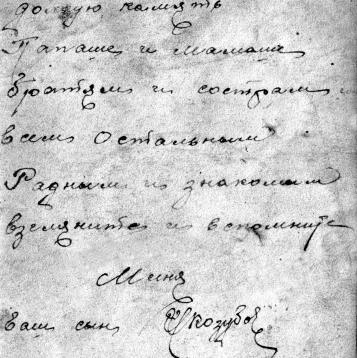 долгую память
Папаше и мамаши
братям и сострам и
всем остальным
Радным и знакомым
взгляните и вспомните
Миня
ваш сын Козубов